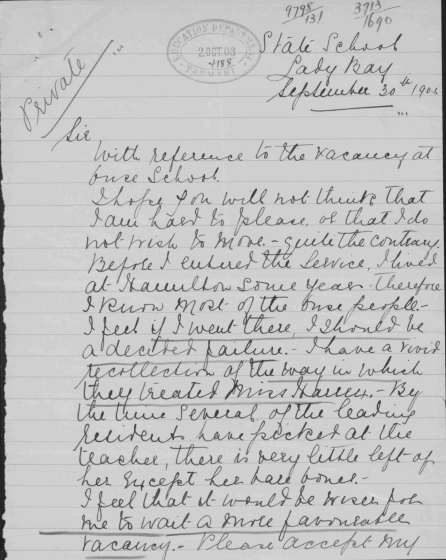 9798
131
3713
1690
EDUCATION DEPARTMENT
2 OCT 03
4188
TASMANIA
Private
State School
Lady Bay
September 30th 190
Sir,
With reference to the vacancy at
Ouse School.
I hope you will not think that
I am hard to please or that I do
not wish to move. - quite the contrary.
Before I entered the Service, I lived
at Hamilton some years - therefore
I know most of the Ouse people. -
I feel if I went there, I should be
a decided failure. - I have a vivid
recollection of the way in which
they treated Miss - By
the time several of the leading
residents have pecked at the
teacher, there is very little left of
her except her bare bones. -
I feel that it would be wiser for
me to wait a more favourable
vacancy. - Please accept my